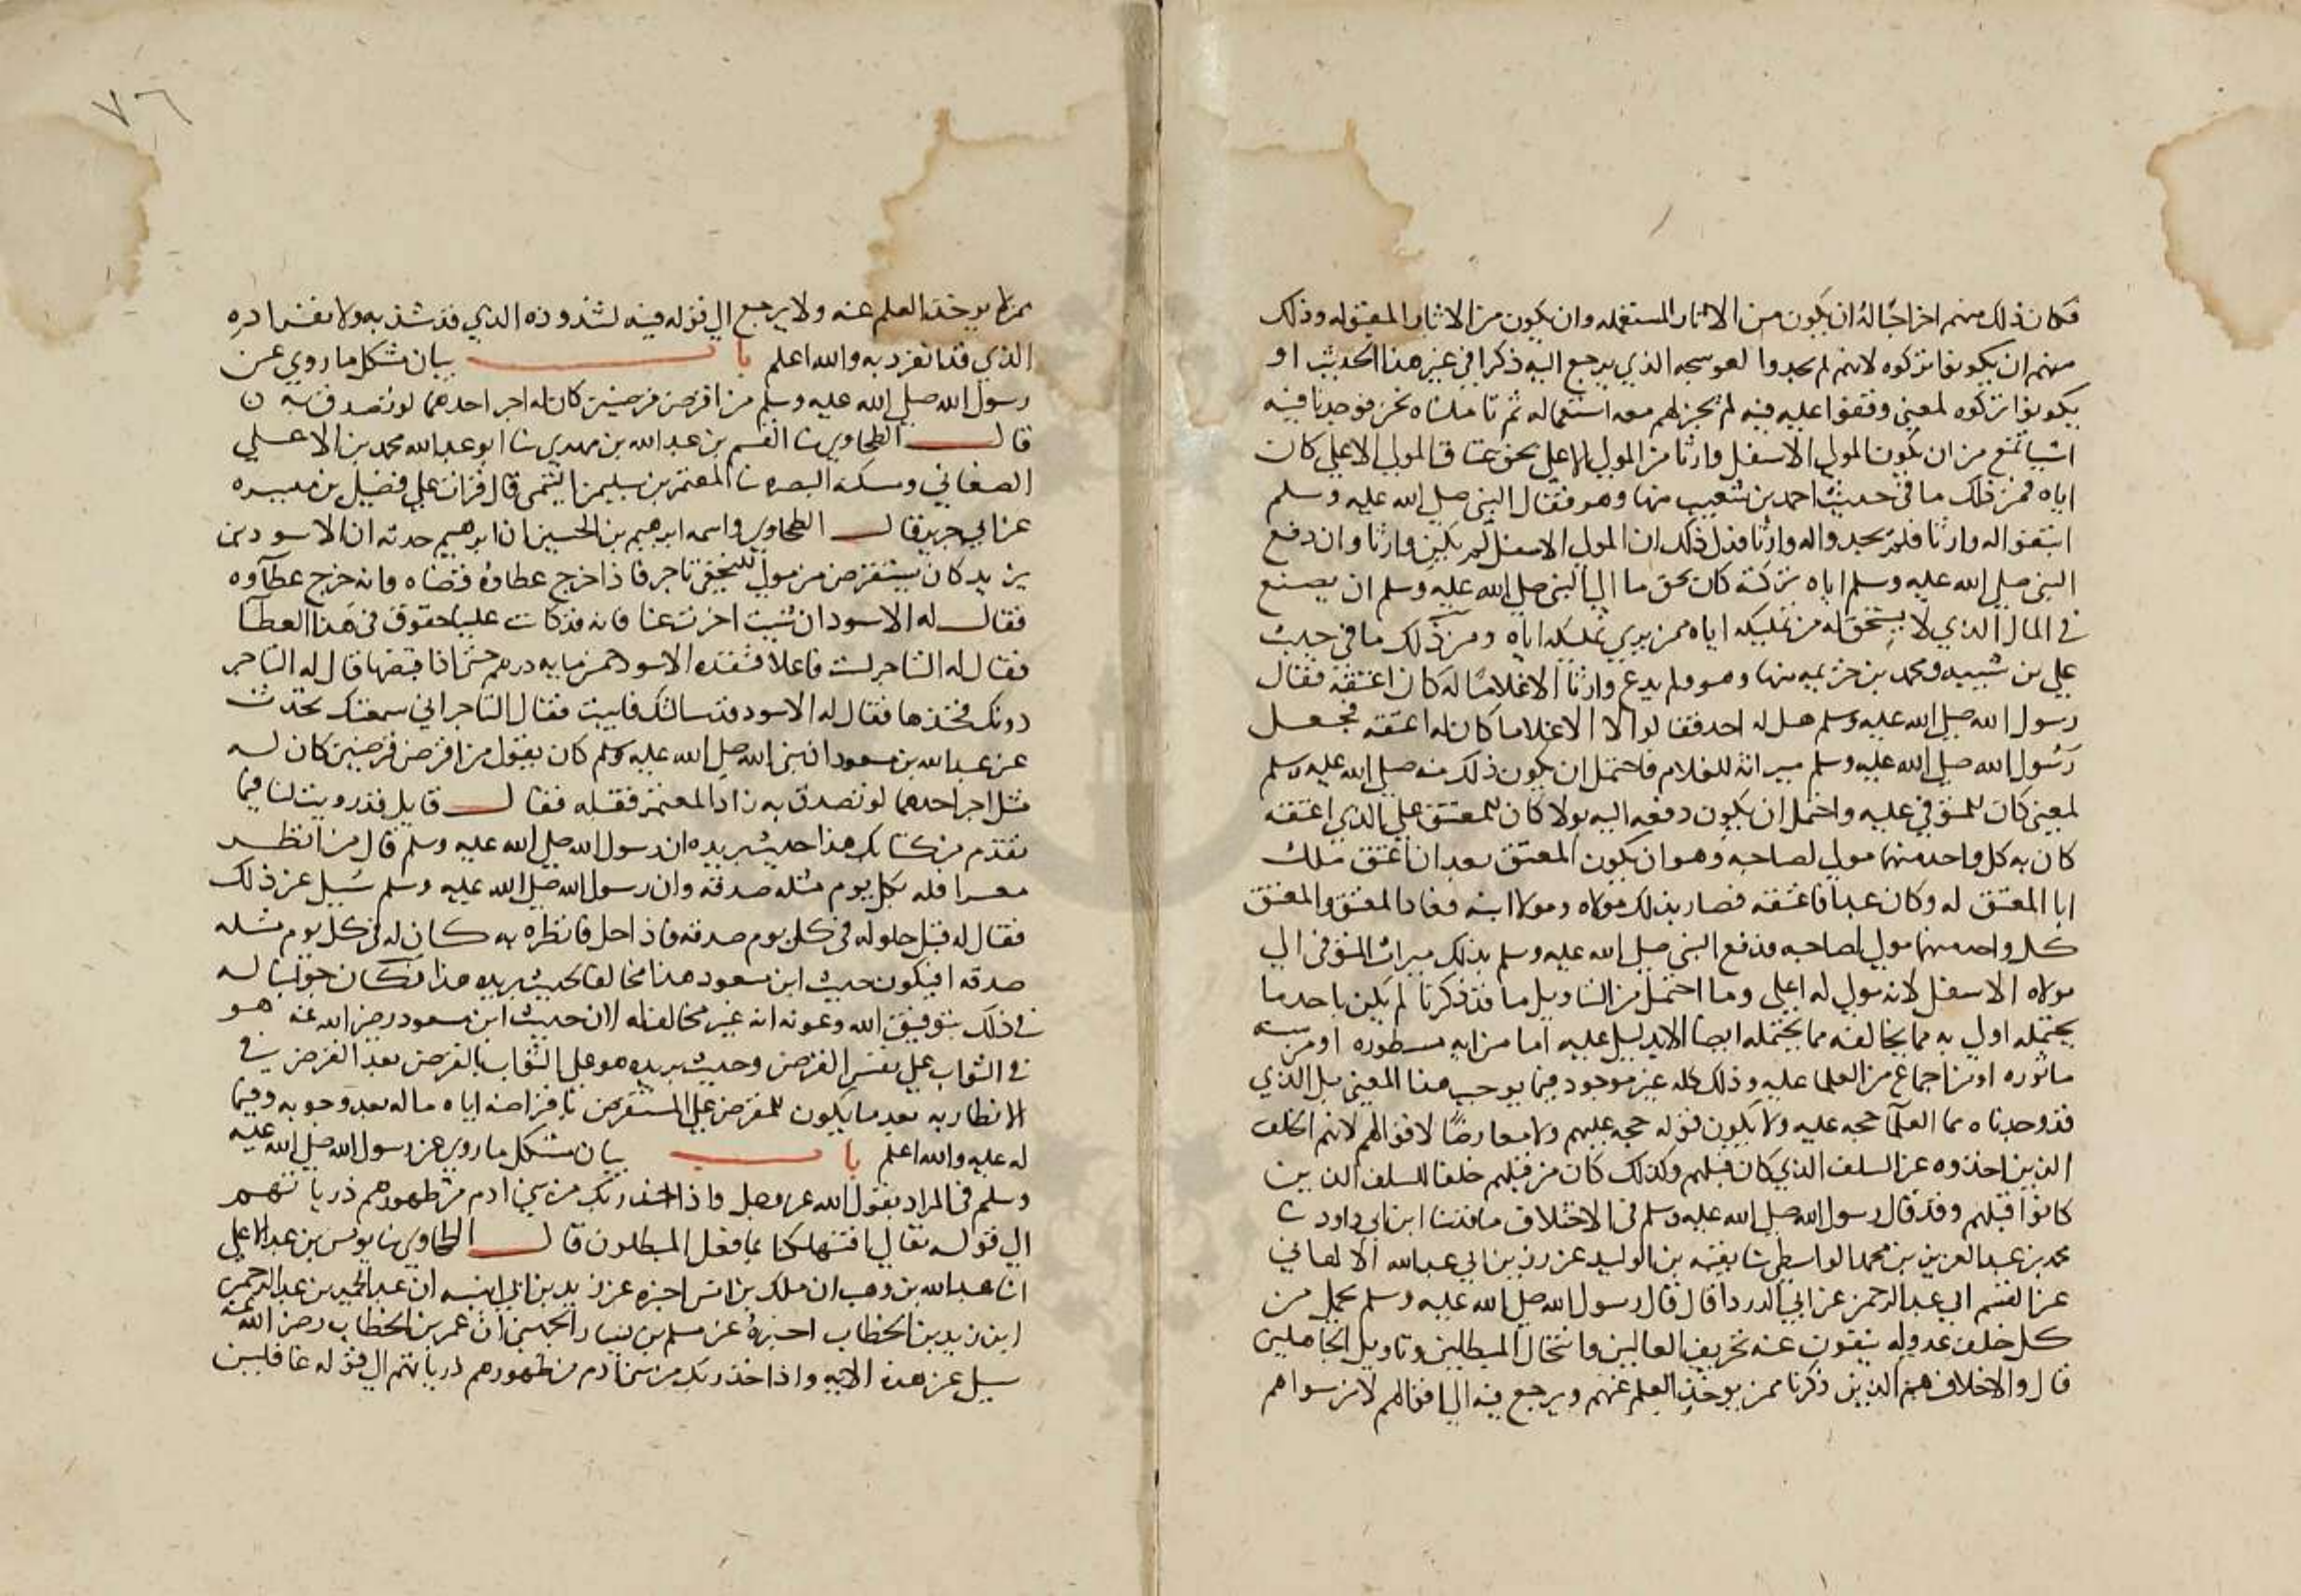 فكان ذلك منهم اخراجا له ان يكون من الاثار المستعمله وان يكون من الاثار المقبوله وذلك
منهم ان يكونوا تركوه لانهم لم يجدوا لعوسجه الذي يرجع اليه ذكرا في غير هذا الحديث او
يكونوا تركوه لمعنى وقفوا عليه فيه لم يجز لهم معه استعماله ثم تاملناه نحن فوجدنا فيه
اشيا تمنع من ان يكون المولى الاسفل وارثا من المولى الاعلى بحق عتاق المولى الاعلى كان
اياه فمن ذلك ما في حديث احمد بن شعيب منها وهو فقال النبي صلى الله عليه وسلم
ابتغوا له وارثا فلم يجدوا له وارثا فدل ذلك ان المولى الاسفل لم يكن وارثا وان دفع
النبي صلى الله عليه وسلم اياه تركته كان بحق ما الى النبي صلى الله عليه وسلم ان يصنع
في المال الذي لا يستحق له من تمليكه اياه من يرى تمليكه اياه ومن ذلك ما في حديث
علي بن شيبه ومحمد بن خزيمه منها وهو ولم يدع وارثا الا غلاما له كان اعتقه فقال
رسول الله صلى الله عليه وسلم هل له احد فقالوا لا الا غلاما كان له اعتقه فجعل
رسول الله صلى الله عليه وسلم ميراثه للغلام فاحتمل ان يكون ذلك منه صلى الله عليه وسلم
لمعنى كان للمتوفى عليه واحتمل ان يكون دفعه اليه بولا كان للمعتق على الذي اعتقه
كان به كل واحد منهما مولى لصاحبه وهو ان يكون المعتق بعد ان اعتق ملك
ابا المعتق له وكان عبدا فاعتقه فصار بذلك مولاه ومولا ابنه فعاد المعتق والمعتق
كل واحد منهما مولى لصاحبه فدفع النبي صلى الله عليه وسلم بذلك ميراث المتوفى الى
مولاه الاسفل لانه مولى له اعلى وما احتمل من التاويل ما قد ذكرنا لم يكن باحد ما
يحتمله اولى به مما يخالفه مما يحتمله ايضا الا بدليل عليه اما من ايه مسطوره او من سنه
ماثوره او من اجماع من العلما عليه وذلك كله غير موجود فيما يوجب هذا المعنى بل الذي
قد وجدناه مما العلما حجه عليه ولا يكون قوله حجه عليهم ولا معارضا لاقوالهم لانهم الخلف
الذين اخذوه عن السلف الذي كان قبلهم وكذلك كان من قبلهم خلفا للسلف الذين
كانوا قبلهم وقد قال رسول الله صلى الله عليه وسلم في الاختلاف ما قد ثنا ابن ابي داود ثنا
محمد بن عبد العزيز بن محمد الواسطي ثنا بقيه بن الوليد عن رزيق بن ابي عبد الله الالهاني
عن القسم ابي عبد الرحمن عن ابي الدردا قال قال رسول الله صلى الله عليه وسلم يحمل من
كل خلف عدوله ينفون عنه تحريف الغالين وانتحال المبطلين وتاويل الجاهلين
قال والاخلاف هم الذين ذكرنا ممن يوخذ العلم عنهم ويرجع فيه الى اقوالهم لا من سواهم
٧٦
ممن لا يوخذ العلم عنه ولا يرجع الى قوله فيه لشذوذه الذي قد شذ به ولانفراده
الذي قد انفرد به والله اعلم باب بيان مشكل ما روي عن
رسول الله صلى الله عليه وسلم من اقرض قرضين كان له اجر احدهما لو تصدق به
قال الطحاوي ثنا القسم بن عبد الله بن مهدي ثنا ابو عبد الله محمد بن الاعلى
الصنعاني ومسكنه البصره ثنا المعتمر بن سليمن التيمي قال قرات على فضيل بن ميسره
عن ابي حريز قال الطحاوي واسمه ابرهيم بن الحسين ان ابرهيم حدثه ان الاسود بن
يزيد كان يستقرض من مولى للنخعي تاجر فاذا خرج عطاوه قضاه وانه خرج عطاوه
فقال له الاسود ان شيت اخرت عنا فانه قد كانت علينا حقوق في هذا العطا
فقال له التاجر لست فاعلا فنقده الاسود خمس مايه درهم حتى اذا قبضها قال له التاجر
دونك فخذها فقال له الاسود قد سالتك فابيت فقال التاجر اني سمعتك تحدث
عن عبد الله بن مسعود ان نبي الله صلى الله عليه وسلم كان يقول من اقرض قرضين كان له
مثل اجر احدهما لو تصدق به زاد المعتمر فقبله فقال قايل قد رويت لنا فيما
تقدم من كتابك هذا حديث بريده ان رسول الله صلى الله عليه وسلم قال من انظر
معسرا فله بكل يوم مثله صدقه وان رسول الله صلى الله عليه وسلم سيل عن ذلك
فقال له قبل حلوله في كل يوم صدقه فاذا حل فانظره به كان له في كل يوم مثله
صدقه افيكون حديث ابن مسعود هذا مخالفا لحديث بريده هذا فكان جوابنا له
في ذلك بتوفيق الله وعونه انه غير مخالف له لان حديث ابن مسعود رضي الله عنه هو
في الثواب على نفس القرض وحديث بريده هو على الثواب بالقرض بعد القرض في
الانظار به بعد ما يكون للمقرض على المستقرض باقراضه اياه ماله بعد وجوبه وفيما
له عليه والله اعلم باب بيان مشكل ما روي عن رسول الله صلى الله عليه
وسلم في المراد بقول الله عز وجل واذ اخذ ربك من بني ادم من ظهورهم ذرياتهم
الى قوله تعالى افتهلكنا بما فعل المبطلون قال الطحاوي ثنا يونس بن عبد الاعلى
انا عبد الله بن وهب ان ملك بن انس اخبره عن زيد بن ابي انيسه ان عبد الحميد بن عبد الرحمن
ابن زيد بن الخطاب اخبره عن مسلم بن يسار الجهني ان عمر بن الخطاب رضي الله عنه
سيل عن هذه الايه واذ اخذ ربك من بني ادم من ظهورهم ذرياتهم الى قوله غافلين